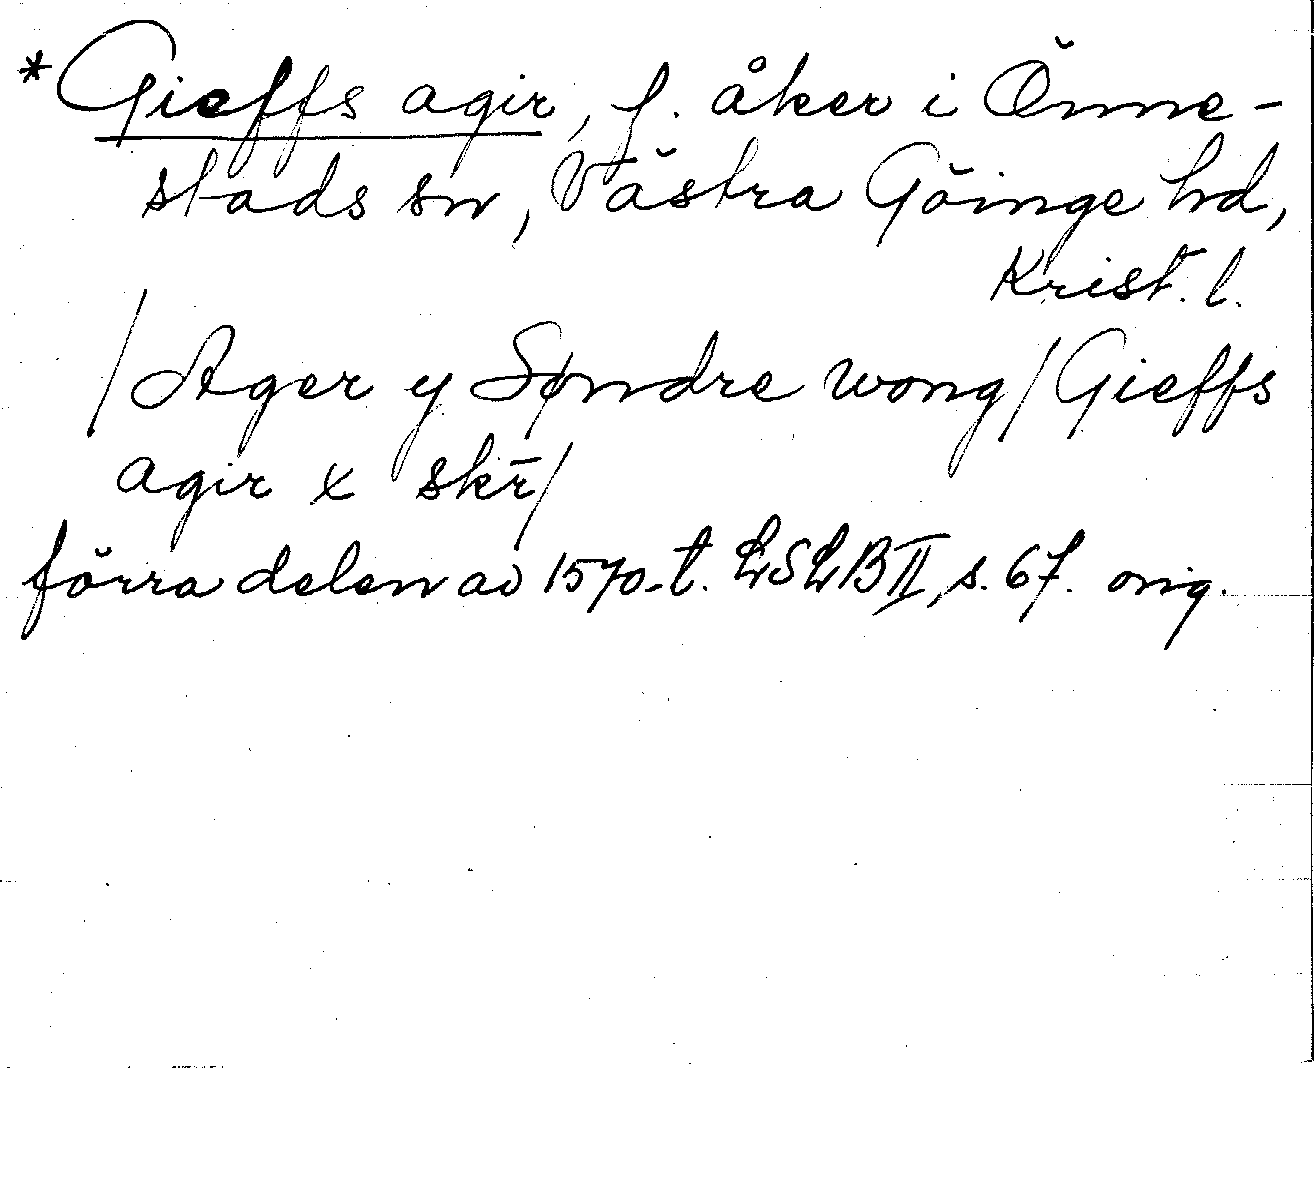 *Gieffs agir, f. åker i Önne-
stads sn, Västra Göinge hd,
Krist. l.
/Ager y Søndre wong/Gieffs
agir x skr̄/
förra delen av 1570-t. LSLB II, s. 67. orig.